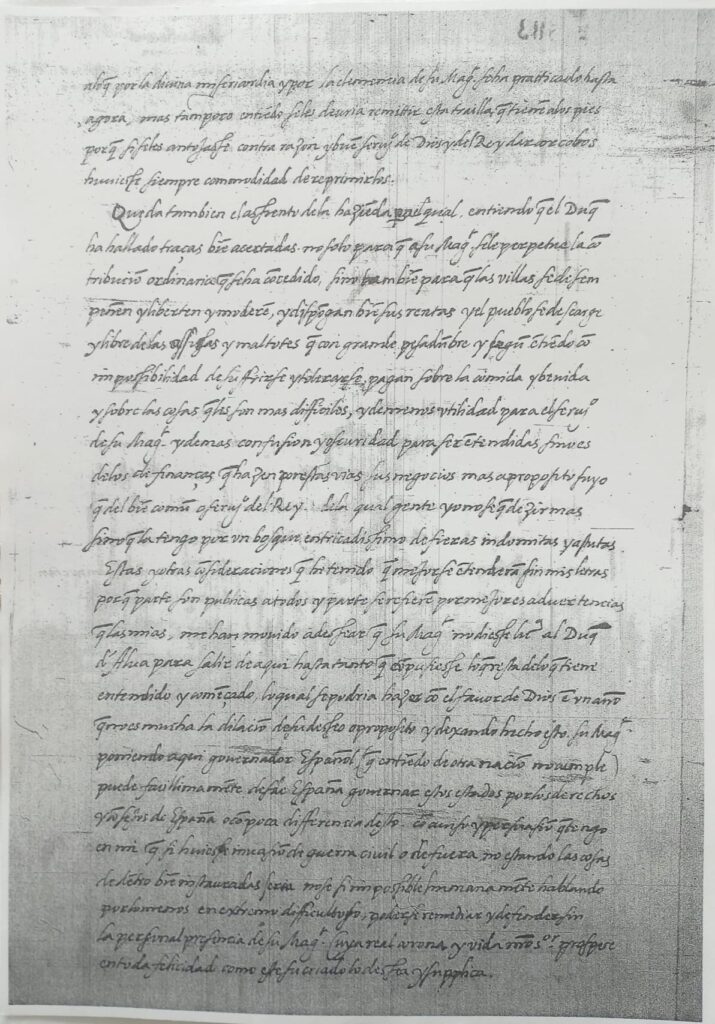 113
alo q̃ por la divina misericordia y por la clemencia de su Mag.^d se ha practicado hasta
agora, mas tampoco entiẽdo se les deuria remitir esta trailla q̃ tienẽ a los pies
porq̃ si se les antojasse contra razon y buẽ seruj.^o de Dios y del Rey dar corcobos
huuiesse siempre commodidad de reprimirlos.
Queda tambien el assiento de la haziẽda por el qual, entiendo q̃ el Duq̃
ha hallado traças biẽ acertadas no solo para q̃ a su Mag.^d se le perpetue la cõ
tribuciõ ordinaria q̃ se ha cõcedido, sino tambiẽ para q̃ las villas se desem
peñen y liberten y moderẽ, y dispõgan biẽ sus rentas y el pueblo se descarge
y libre de las assisas y maltotes q̃ cõ grande pesadũbre y segũ ẽtiẽdo cõ
impossibilidad de suffrirse y tolerarse, pagan sobre la comida y bevida
y sobre las cosas q̃ les son mas difficiles, y de menos utilidad para el seruj.^o
de su Mag.^d y de mas confusion y oscuridad para ser ẽtendidas, sino es
de los de finanças q̃ hazen por estas vias sus negocios mas a proposito suyo
q̃ del biẽ comũ o seruj.^o del Rey. de la qual gente yo no se q̃ dezir mas
sino q̃ la tengo por un bosque entricadissimo de fieras indomitas y astutas
Estas y otras cõsideraciones q̃ he tenido q̃ mejor se ẽtenderã sin mis letras
porq̃ parte son publicas a todos y parte se refierẽ por mejores aduertencias
q̃ las mias, me han movido a dessear q̃ su Mag.^d no diesse lic.^a al Duq̃
d'Alua para salir de aqui hasta tanto q̃ cõpusiesse lo q̃ resta de lo q̃ tiene
entendido y comẽçado, lo qual se podria hazer cõ el favor de Dios ẽ un año
q̃ no es mucha la dilaciõ de su desseo o proposito y dexando hecho esto. su Mag.^d
poniendo aqui governador Español (q̃ entiẽdo de otra naciõ no cumple)
puede facillimamẽte desde España governar estos estados por los derechos
y cõsejos de España o cõ poca differencia desto. cõ auiso y persuasiõ q̃ tengo
en mi q̃ si huiesse inuasiõ de guerra civil o de fuera no estando las cosas
de dẽtro biẽ instauradas seria no se si impossible humana mẽte hablando
por lo menos en extremo difficultoso, poderse remediar y defender sin
la personal presencia de su Mag.^d cuya real corona y vida nr̃o S.^or prospere
en toda felicidad como este su criado lo dessea y supplica.